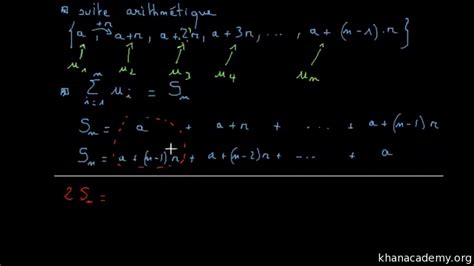 suite arithmétique
+r
{a, a+r, a+2r, a+3r, ..., a+(n-1).r}
u₁ u₂ u₃ u₄ uₙ
n
∑ uᵢ = Sₙ
i=1
Sₙ = a + a+r + ... + a+(n-1)r
Sₙ = a+(n-1)r + a+(n-2)r + ... + a
2S =
khanacademy.org